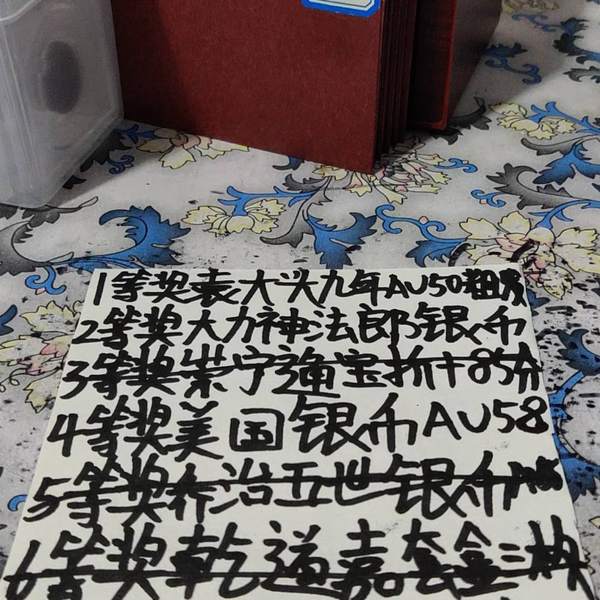 1等奖袁大头九年AU50粗发
2等奖大力神法郎银币
3等奖崇宁通宝折十85分
4等奖美国银币AU58
5等奖乔治五世银币
6等奖乾道嘉套盒三枚